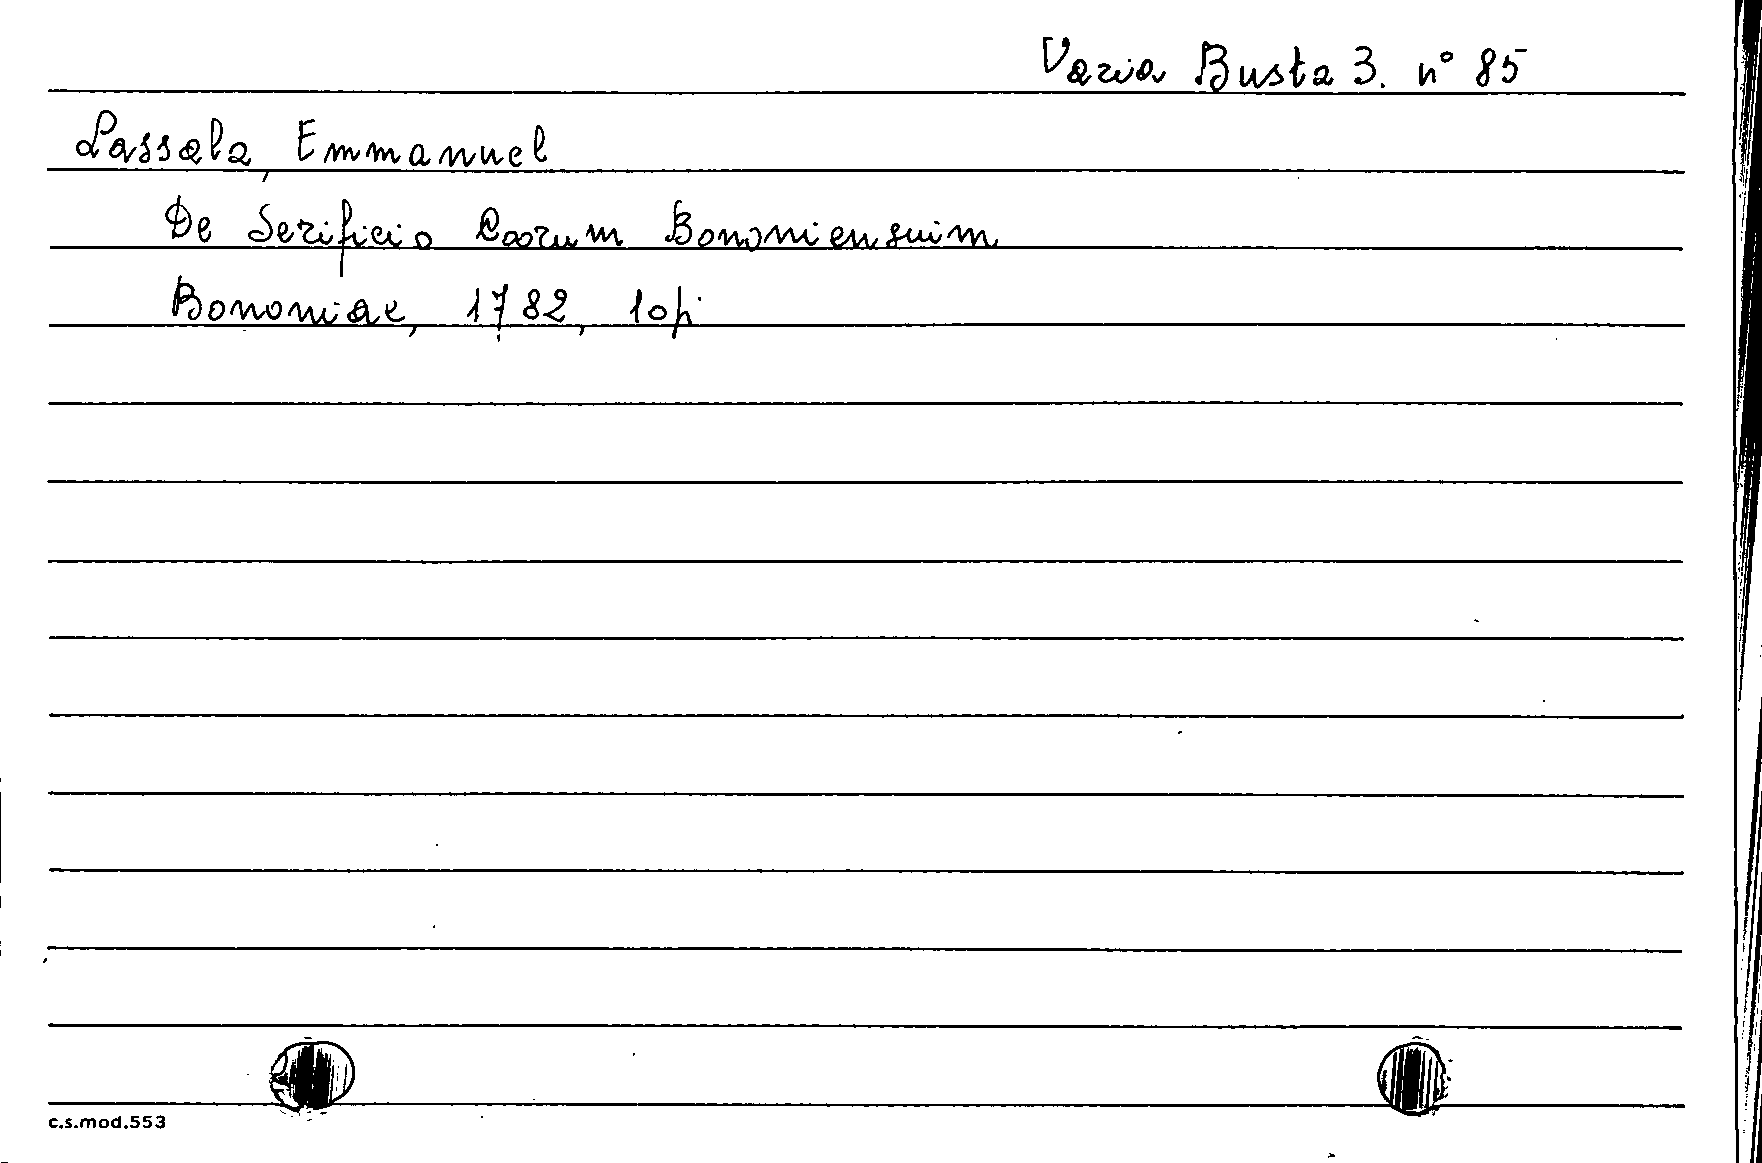 Varia Busta 3. n° 85
Lassala, Emmanuel
De Serificio Coorum Bononiensuim
Bononiae, 1782, 10p.
c.s.mod.553